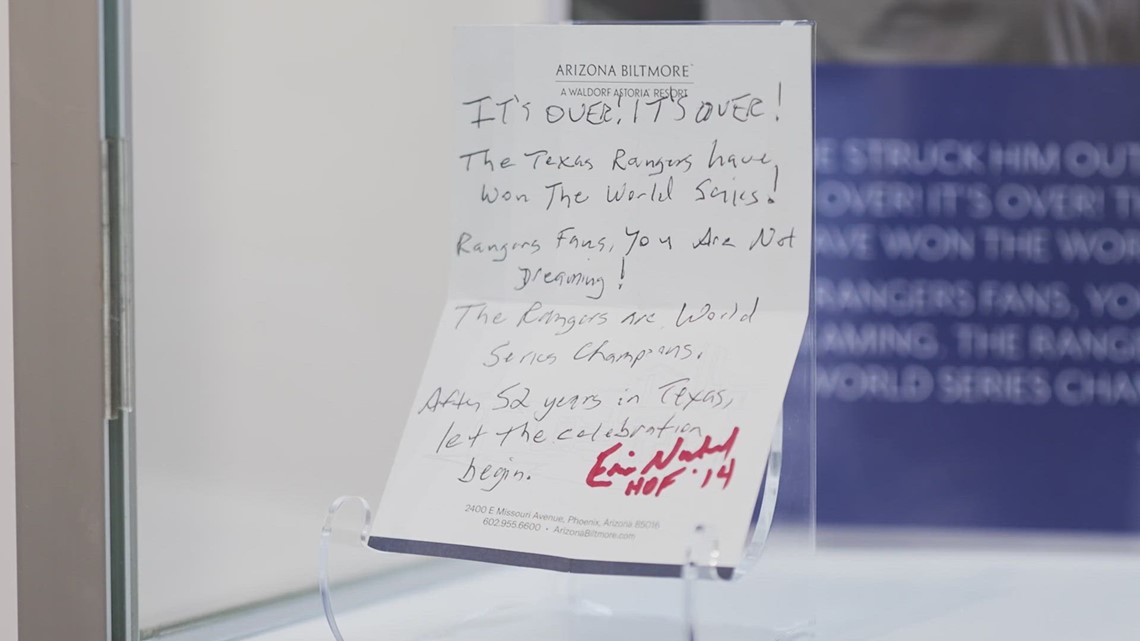 ARIZONA BILTMORE
A WALDORF ASTORIA RESORT
IT'S OVER! IT'S OVER!
The Texas Rangers have
Won The World Series!
Rangers Fans, You Are Not
Dreaming!
The Rangers are World
Series Champions.
After 52 years in Texas,
let the celebration
begin.
Eric Nadel
HOF '14
2400 E Missouri Avenue, Phoenix, Arizona 85016
602.955.6600 • ArizonaBiltmore.com
E STRUCK HIM OUT
OVER! IT'S OVER! T
AVE WON THE WOR
RANGERS FANS, YO
AMING. THE RANG
WORLD SERIES CHA